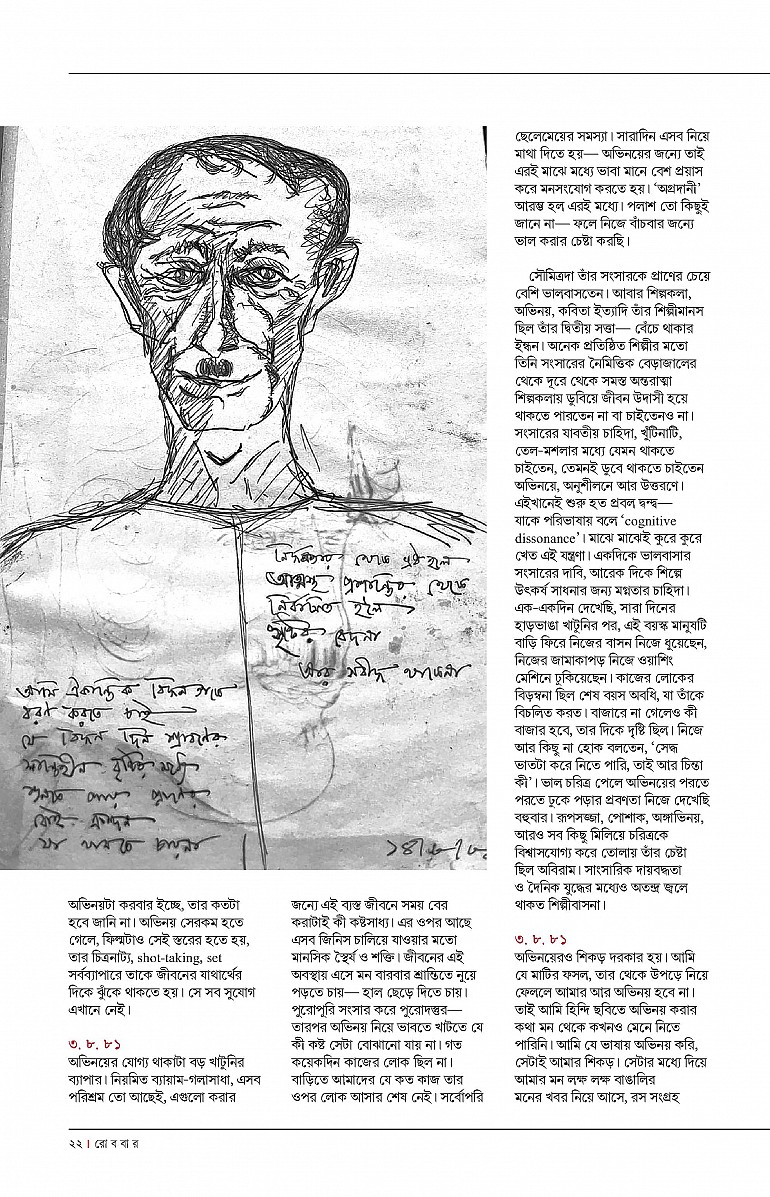 অভিনয়টা করবার ইচ্ছে, তার কতটা
হবে জানি না। অভিনয় সেরকম হতে
গেলে, ফিল্মটাও সেই স্তরের হতে হয়,
তার চিত্রনাট্য, shot-taking, set
সর্বব্যাপারে তাকে জীবনের যাথার্থের
দিকে ঝুঁকে থাকতে হয়। সে সব সুযোগ
এখানে নেই।
৩. ৮. ৮১
অভিনয়ের যোগ্য থাকাটা বড় খাটুনির
ব্যাপার। নিয়মিত ব্যায়াম-গলাসাধা, এসব
পরিশ্রম তো আছেই, এগুলো করার
জন্যে এই ব্যস্ত জীবনে সময় বের
করাটাই কী কষ্টসাধ্য। এর ওপর আছে
এসব জিনিস চালিয়ে যাওয়ার মতো
মানসিক স্থৈর্য ও শক্তি। জীবনের এই
অবস্থায় এসে মন বারবার শ্রান্তিতে নুয়ে
পড়তে চায়— হাল ছেড়ে দিতে চায়।
পুরোপুরি সংসার করে পুরোদস্তুর—
তারপর অভিনয় নিয়ে ভাবতে খাটতে যে
কী কষ্ট সেটা বোঝানো যায় না। গত
কয়েকদিন কাজের লোক ছিল না।
বাড়িতে আমাদের যে কত কাজ তার
ওপর লোক আসার শেষ নেই। সর্বোপরি
ছেলেমেয়ের সমস্যা। সারাদিন এসব নিয়ে
মাথা দিতে হয়— অভিনয়ের জন্যে তাই
এরই মাঝে মধ্যে ভাবা মানে বেশ প্রয়াস
করে মনসংযোগ করতে হয়। ‘অগ্রদানী’
আরম্ভ হল এরই মধ্যে। পলাশ তো কিছুই
জানে না— ফলে নিজে বাঁচবার জন্যে
ভাল করার চেষ্টা করছি।
সৌমিত্রদা তাঁর সংসারকে প্রাণের চেয়ে
বেশি ভালবাসতেন। আবার শিল্পকলা,
অভিনয়, কবিতা ইত্যাদি তাঁর শিল্পীমানস
ছিল তাঁর দ্বিতীয় সত্তা— বেঁচে থাকার
ইন্ধন। অনেক প্রতিষ্ঠিত শিল্পীর মতো
তিনি সংসারের নৈমিত্তিক বেড়াজালের
থেকে দূরে থেকে সমস্ত অন্তরাত্মা
শিল্পকলায় ডুবিয়ে জীবন উদাসী হয়ে
থাকতে পারতেন না বা চাইতেনও না।
সংসারের যাবতীয় চাহিদা, খুঁটিনাটি,
তেল-মশলার মধ্যে যেমন থাকতে
চাইতেন, তেমনই ডুবে থাকতে চাইতেন
অভিনয়ে, অনুশীলনে আর উত্তরণে।
এইখানেই শুরু হত প্রবল দ্বন্দ্ব—
যাকে পরিভাষায় বলে ‘cognitive
dissonance’। মাঝে মাঝেই কুরে কুরে
খেত এই যন্ত্রণা। একদিকে ভালবাসার
সংসারের দাবি, আরেক দিকে শিল্পে
উৎকর্ষ সাধনার জন্য মগ্নতার চাহিদা।
এক-একদিন দেখেছি, সারা দিনের
হাড়ভাঙা খাটুনির পর, এই বয়স্ক মানুষটি
বাড়ি ফিরে নিজের বাসন নিজে ধুয়েছেন,
নিজের জামাকাপড় নিজে ওয়াশিং
মেশিনে ঢুকিয়েছেন। কাজের লোকের
বিড়ম্বনা ছিল শেষ বয়স অবধি, যা তাঁকে
বিচলিত করত। বাজারে না গেলেও কী
বাজার হবে, তার দিকে দৃষ্টি ছিল। নিজে
আর কিছু না হোক বলতেন, ‘সেদ্ধ
ভাতটা করে নিতে পারি, তাই আর চিন্তা
কী’। ভাল চরিত্র পেলে অভিনয়ের পরতে
পরতে ঢুকে পড়ার প্রবণতা নিজে দেখেছি
বহুবার। রূপসজ্জা, পোশাক, অঙ্গাভিনয়,
আরও সব কিছু মিলিয়ে চরিত্রকে
বিশ্বাসযোগ্য করে তোলায় তাঁর চেষ্টা
ছিল অবিরাম। সাংসারিক দায়বদ্ধতা
ও দৈনিক যুদ্ধের মধ্যেও অতন্দ্র জ্বলে
থাকত শিল্পীবাসনা।
৩. ৮. ৮১
অভিনয়েরও শিকড় দরকার হয়। আমি
যে মাটির ফসল, তার থেকে উপড়ে নিয়ে
ফেললে আমার আর অভিনয় হবে না।
তাই আমি হিন্দি ছবিতে অভিনয় করার
কথা মন থেকে কখনও মেনে নিতে
পারিনি। আমি যে ভাষায় অভিনয় করি,
সেটাই আমার শিকড়। সেটার মধ্যে দিয়ে
আমার মন লক্ষ লক্ষ বাঙালির
মনের খবর নিয়ে আসে, রস সংগ্রহ
থেকে
থেকে
নির্বাসিত হলে
সৃষ্টির বেদনা
আমি ঐকান্তিক
করতে চাই
যে দিন শ্রাবণের
বৃষ্টির মধ্যে
২২ । রো ব বা র